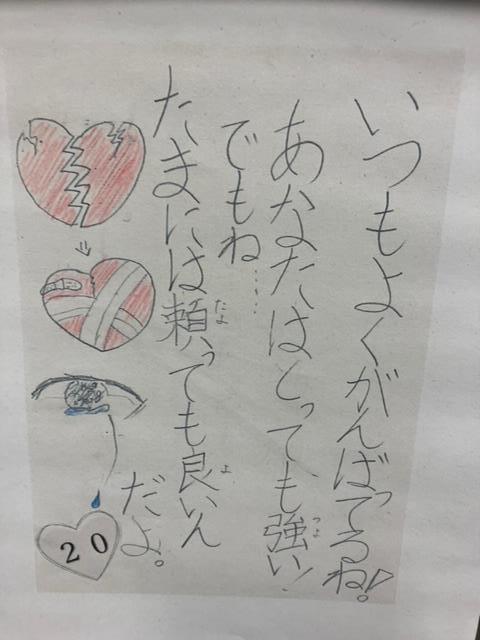 いつもよくがんばってるね!。
あなたはとっても強い!
つよ
でもね……
たまには頼っても良いん
たよ
よ
だよ。
20